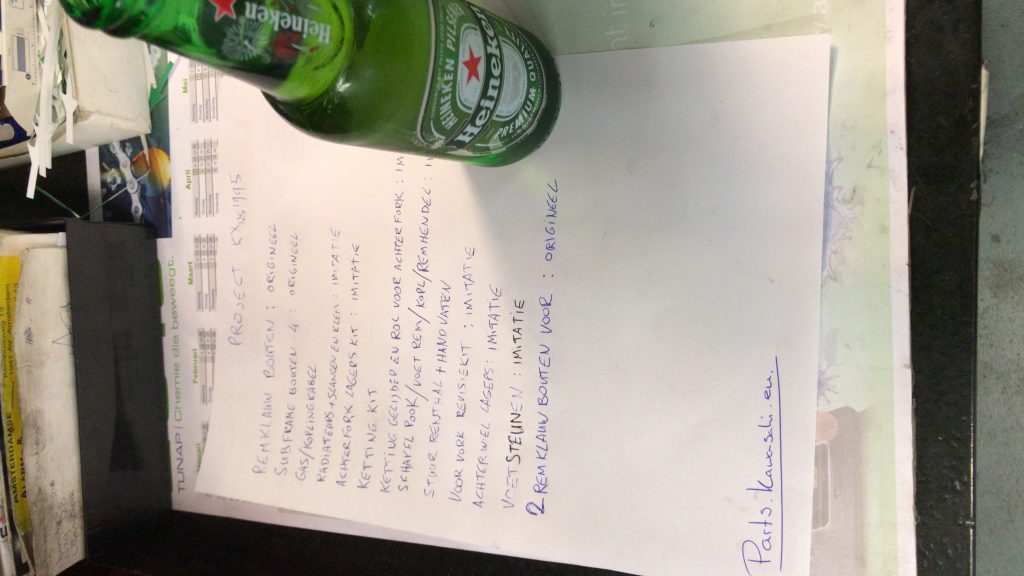 PROJECT KX125 1995
REMKLAUW BOUTEN : ORIGINEEL
SUBFRAME BOUTEN 4 : ORIGINEEL
GAS/KOPELINGKABEL
RADIATEURS + SLANGEN EN KLEM : IMITATIE
ACHTERFORK LAGERS KIT : IMITATIE
KETTING KIT
KETTING GELIJDER EN ROL VOOR ACHTER FORK : IM
SCHAKEL POOK/VOET REM/KOPL/REMHENDEL : IM
STUUR RENTHAL + HANDVATEN
VOOR VORK REVISIEKIT : IMITATIE
ACHTERWIEL LAGERS : IMITATIE
VOETSTEUNEN : IMITATIE
2 REMKLAUW BOUTEN VOOR : ORIGINEEL
Parts.Kawasaki.eu
Heineken
HEINEKEN PILSENER
Heineken
PREMIUM QUALITY
TUNAP | Chemie die beweegt.
Februari
Maart
April
Mei
AMSTERDAMSE
ALARM